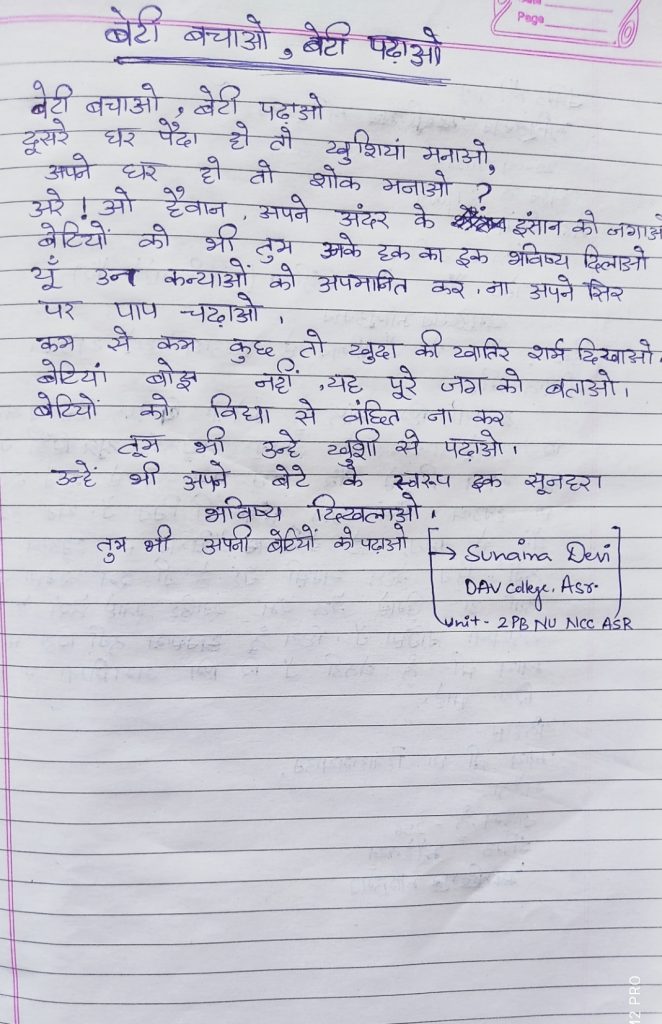 Page
बेटी बचाओ, बेटी पढ़ाओ
बेटी बचाओ, बेटी पढ़ाओ
दूसरे घर पैदा हो तो खुशियां मनाओ,
अपने घर हो तो शोक मनाओ ?
अरे ! ओ हैवान, अपने अंदर के इंसान को जगाओ
बेटियों को भी तुम उनके हक का इक भविष्य दिलाओ
यूँ उन कन्याओं को अपमानित कर, ना अपने सिर
पर पाप चढ़ाओ ,
कम से कम कुछ तो खुदा की खातिर शर्म दिखाओ,
बेटियां बोझ नहीं, यह पूरे जग को बताओ।
बेटियों को विद्या से वंछित ना कर
तूम भी उन्हे खुशी से पढ़ाओ।
उन्हें भी अपने बेटे के स्वरूप इक सूनहरा
भविष्य दिखलाओ,
तुम भी अपनी बेटियों को पढ़ाओ
→ Sunaina Devi
DAV College, Asr.
Unit - 2 PB NU NCC ASR
M2 PRO